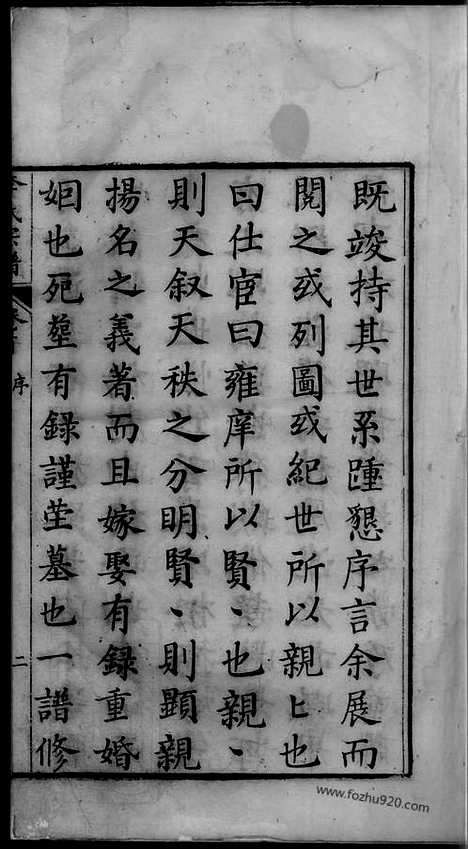 既竣持其世系踵懇序言余展而
閱之或列圖或紀世所以親〻也
曰仕宦曰雍庠所以賢〻也親〻
則天叙天秩之分明賢〻則顯親
揚名之義著而且嫁娶有録重婚
姻也死塟有録謹塋墓也一譜修
氏宗譜
序
二
www.fozhu920.com